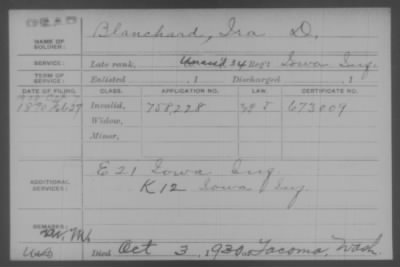 DEAD
NAME OF SOLDIER: Blanchard, Ira D.
SERVICE: Late rank, 34 Reg't Iowa Inf.
TERM OF SERVICE: Enlisted , 1 Discharged , 1
DATE OF FILING. CLASS. APPLICATION NO. LAW. CERTIFICATE NO.
1890 Feb 27 Invalid, 758,228 673009
Widow,
Minor,
ADDITIONAL SERVICES: E 21 Iowa Inf
K 12 Iowa Inf
REMARKS:
Died Oct 3, 1930, Tacoma, Wash.